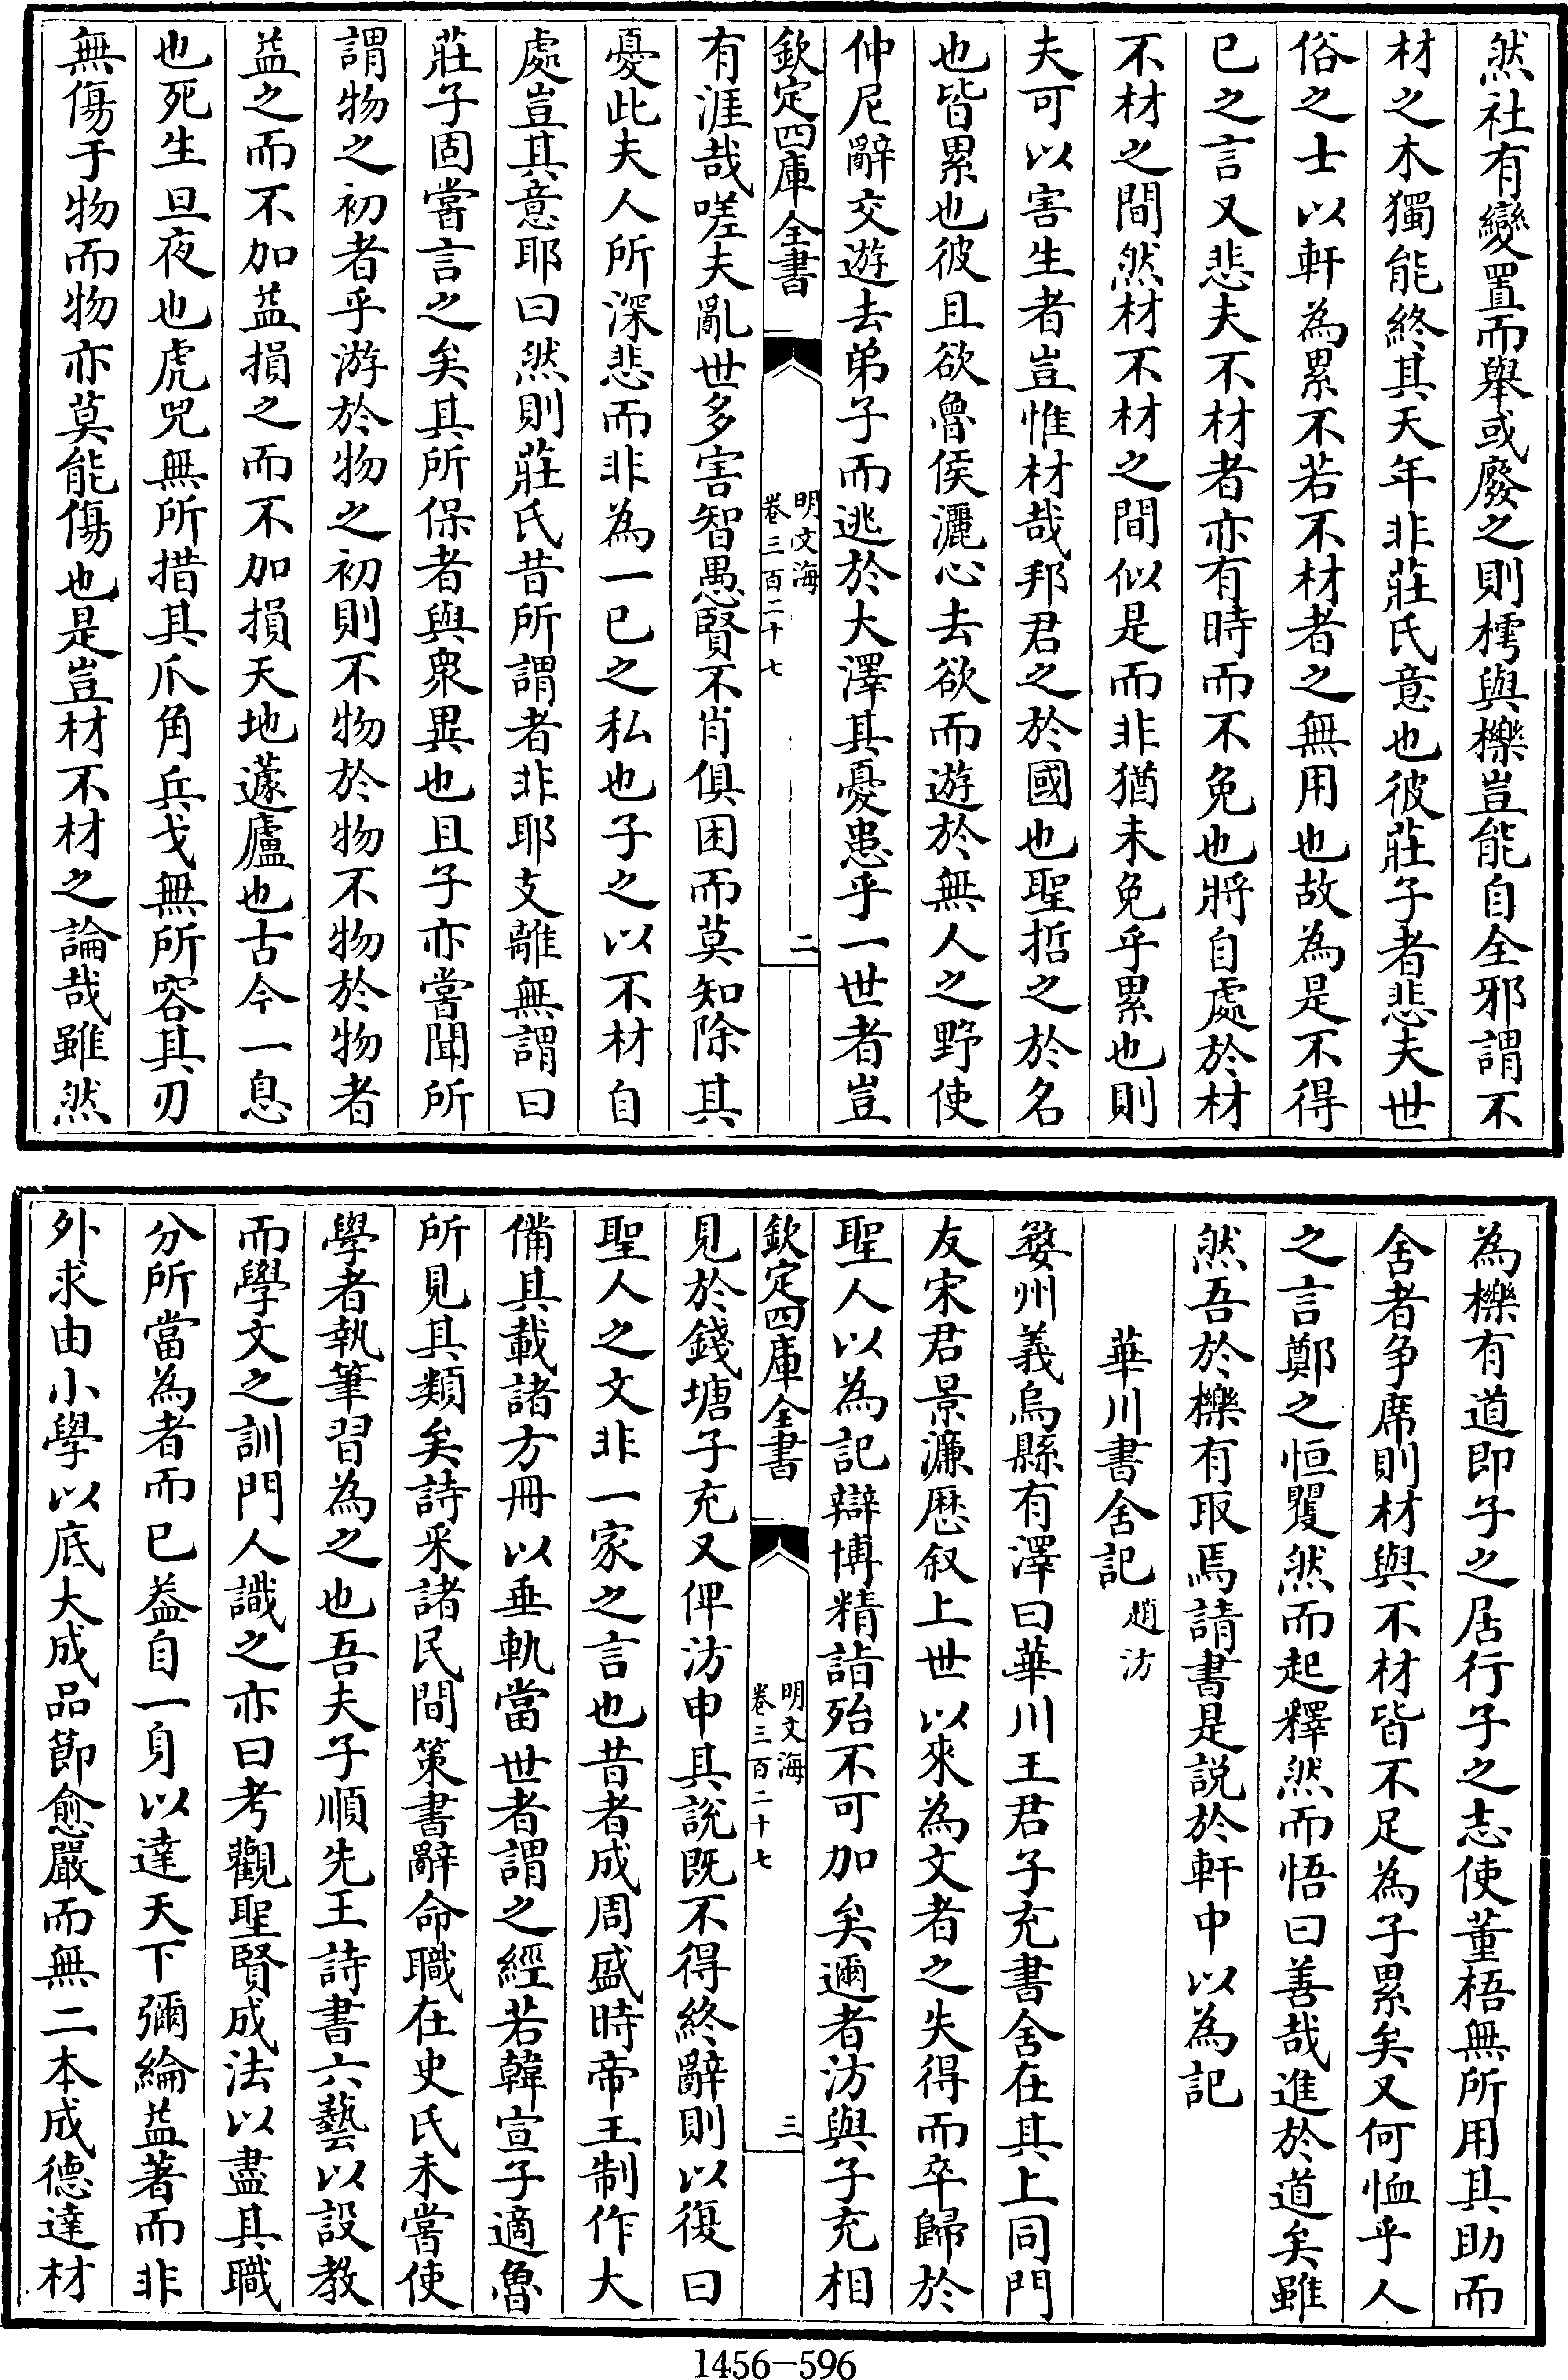 然社有變置而舉或廢之則樗與櫟豈能自全邪謂不
材之木獨能終其天年非莊氏意也彼莊子者悲夫世
俗之士以軒為累不若不材者之無用也故為是不得
已之言又悲夫不材者亦有時而不免也將自處於材
不材之間然材不材之間似是而非猶未免乎累也則
夫可以害生者豈惟材哉邦君之於國也聖哲之於名
也皆累也彼且欲魯侯灑心去欲而遊於無人之野使
仲尼辭交遊去弟子而逃於大澤其憂患乎一世者豈
欽定四庫全書
明文海
卷三百二十七
二
有涯哉嗟夫亂世多害智愚賢不肖俱困而莫知除其
憂此夫人所深悲而非為一已之私也子之以不材自
處豈其意耶曰然則莊氏昔所謂者非耶支離無謂曰
莊子固嘗言之矣其所保者與衆異也且子亦嘗聞所
謂物之初者乎游於物之初則不物於物不物於物者
益之而不加益損之而不加損天地蘧廬也古今一息
也死生旦夜也虎兕無所措其爪角兵戈無所容其刃
無傷于物而物亦莫能傷也是豈材不材之論哉雖然
為櫟有道即子之居行子之志使董梧無所用其助而
舍者争席則材與不材皆不足為子累矣又何恤乎人
之言鄭之恒矍然而起釋然而悟曰善哉進於道矣雖
然吾於櫟有取焉請書是説於軒中以為記
華川書舍記趙汸
婺州義烏縣有澤曰華川王君子充書舍在其上同門
友宋君景濂歴叙上世以來為文者之失得而卒歸於
聖人以為記辯博精詣殆不可加矣邇者汸與子充相
欽定四庫全書
明文海
卷三百二十七
三
見於錢塘子充又俾汸申其說既不得終辭則以復曰
聖人之文非一家之言也昔者成周盛時帝王制作大
備其載諸方冊以垂軌當世者謂之經若韓宣子適魯
所見其類矣詩采諸民間策書辭命職在史氏未嘗使
學者執筆習為之也吾夫子順先王詩書六藝以設教
而學文之訓門人識之亦曰考觀聖賢成法以盡其職
分所當為者而已葢自一身以達天下彌綸益著而非
外求由小學以底大成品節愈嚴而無二本成德達材
1456-596